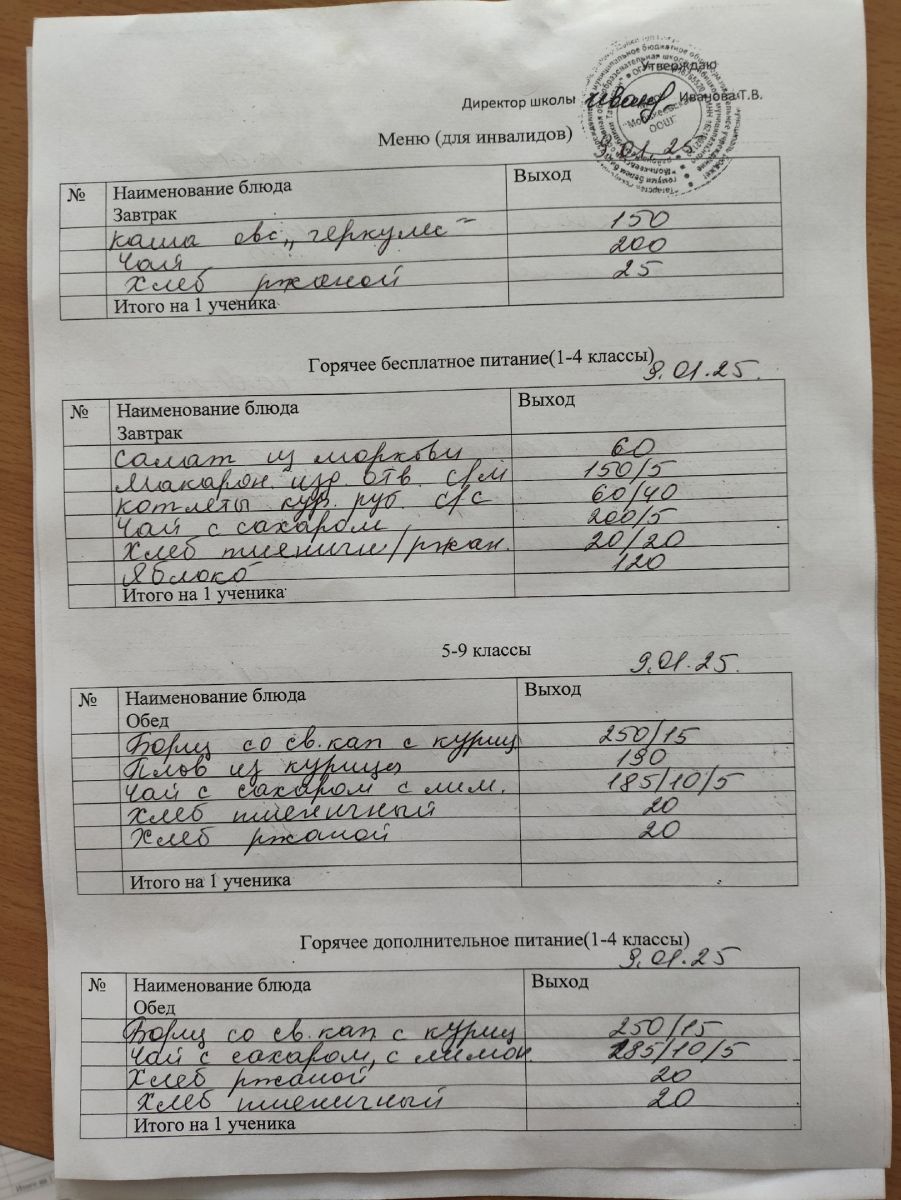 Утверждаю
Директор школы Иванова Т.В.
Меню (для инвалидов) 9.01.25
№ Наименование блюда Выход
Завтрак
каша овс „геркулес" 150
Чай 200
Хлеб ржаной 25
Итого на 1 ученика
Горячее бесплатное питание(1-4 классы) 9.01.25.
№ Наименование блюда Выход
Завтрак
Салат из моркови 60
Макарон. изд. отв. с/м 150/5
котлеты кур. руб. с/с 60/40
Чай с сахаром 200/5
Хлеб пшеничн/ржан. 20/20
Яблоко 120
Итого на 1 ученика
5-9 классы 9.01.25.
№ Наименование блюда Выход
Обед
Борщ со св.кап с куриц 250/15
Плов из курицы 190
Чай с сахаром с лим. 185/10/5
Хлеб пшеничный 20
Хлеб ржаной 20
Итого на 1 ученика
Горячее дополнительное питание(1-4 классы)
9.01.25
№ Наименование блюда Выход
Обед
Борщ со св.кап с куриц 250/15
Чай с сахаром, с лимон. 185/10/5
Хлеб ржаной 20
Хлеб пшеничный 20
Итого на 1 ученика